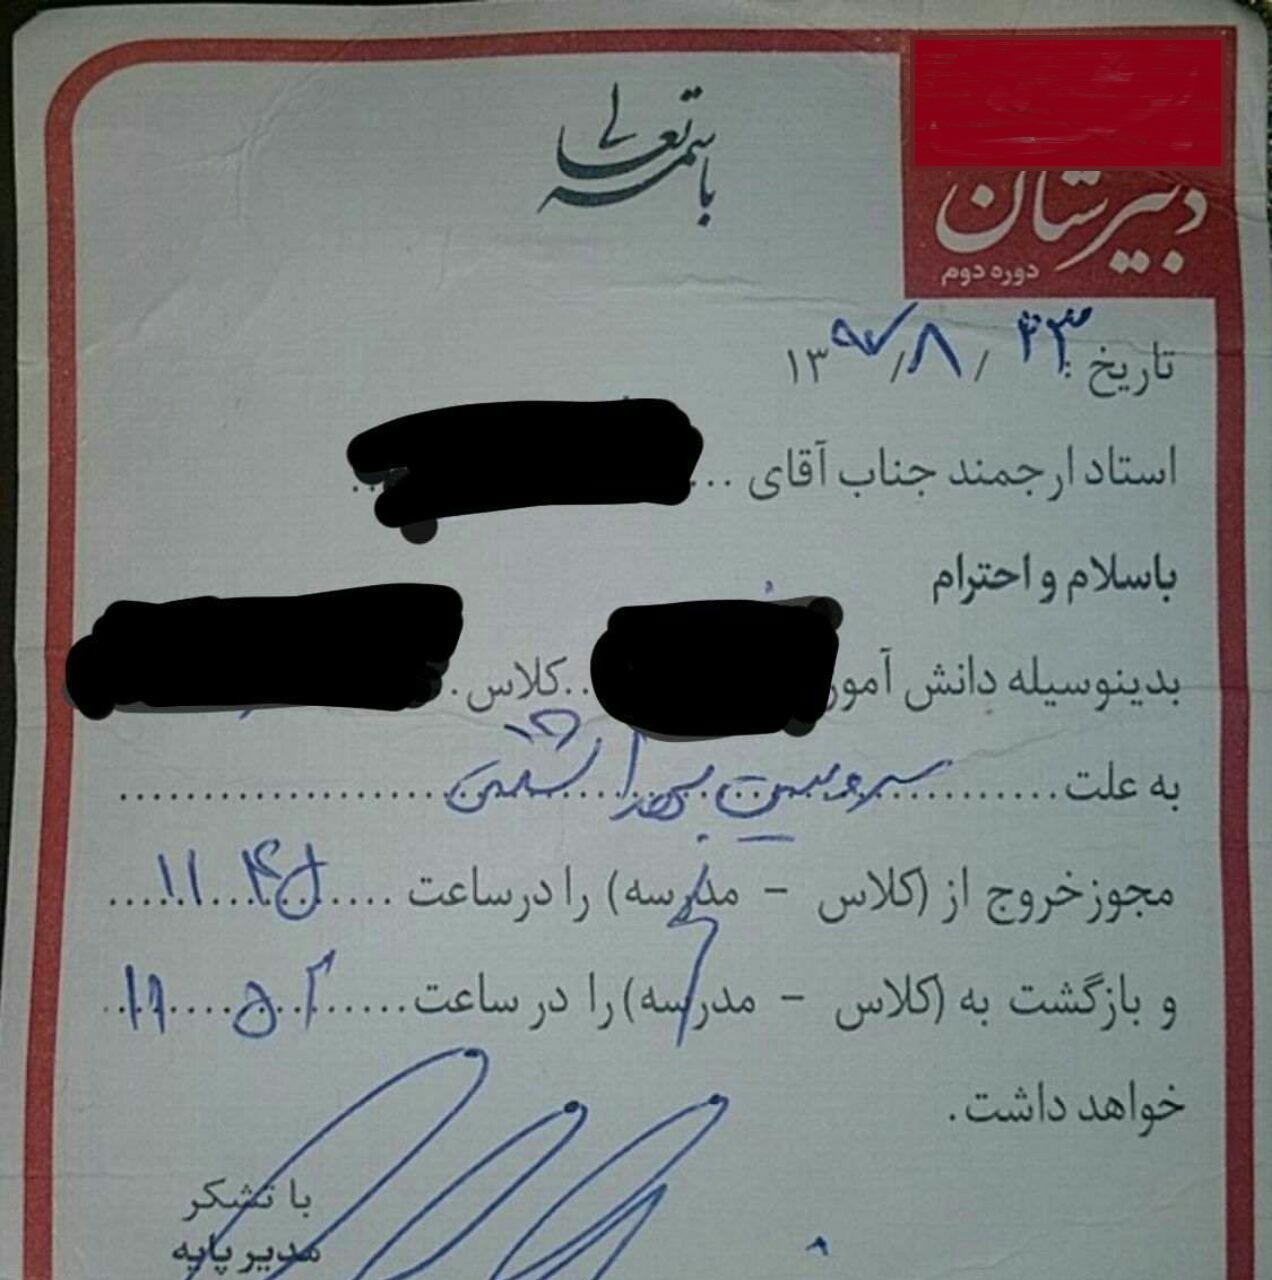 باسمه تعالی
دبیرستان
دوره دوم
تاریخ : ۲۳ / ۸ / ۱۳۹۷
استاد ارجمند جناب آقای ...
باسلام و احترام
بدینوسیله دانش آموز ... کلاس ...
به علت سرویس بهداشتی
مجوز خروج از (کلاس - مدرسه) را در ساعت ۱۱:۴۵
و بازگشت به (کلاس - مدرسه) را در ساعت
خواهد داشت.
با تشکر
مدیر پایه